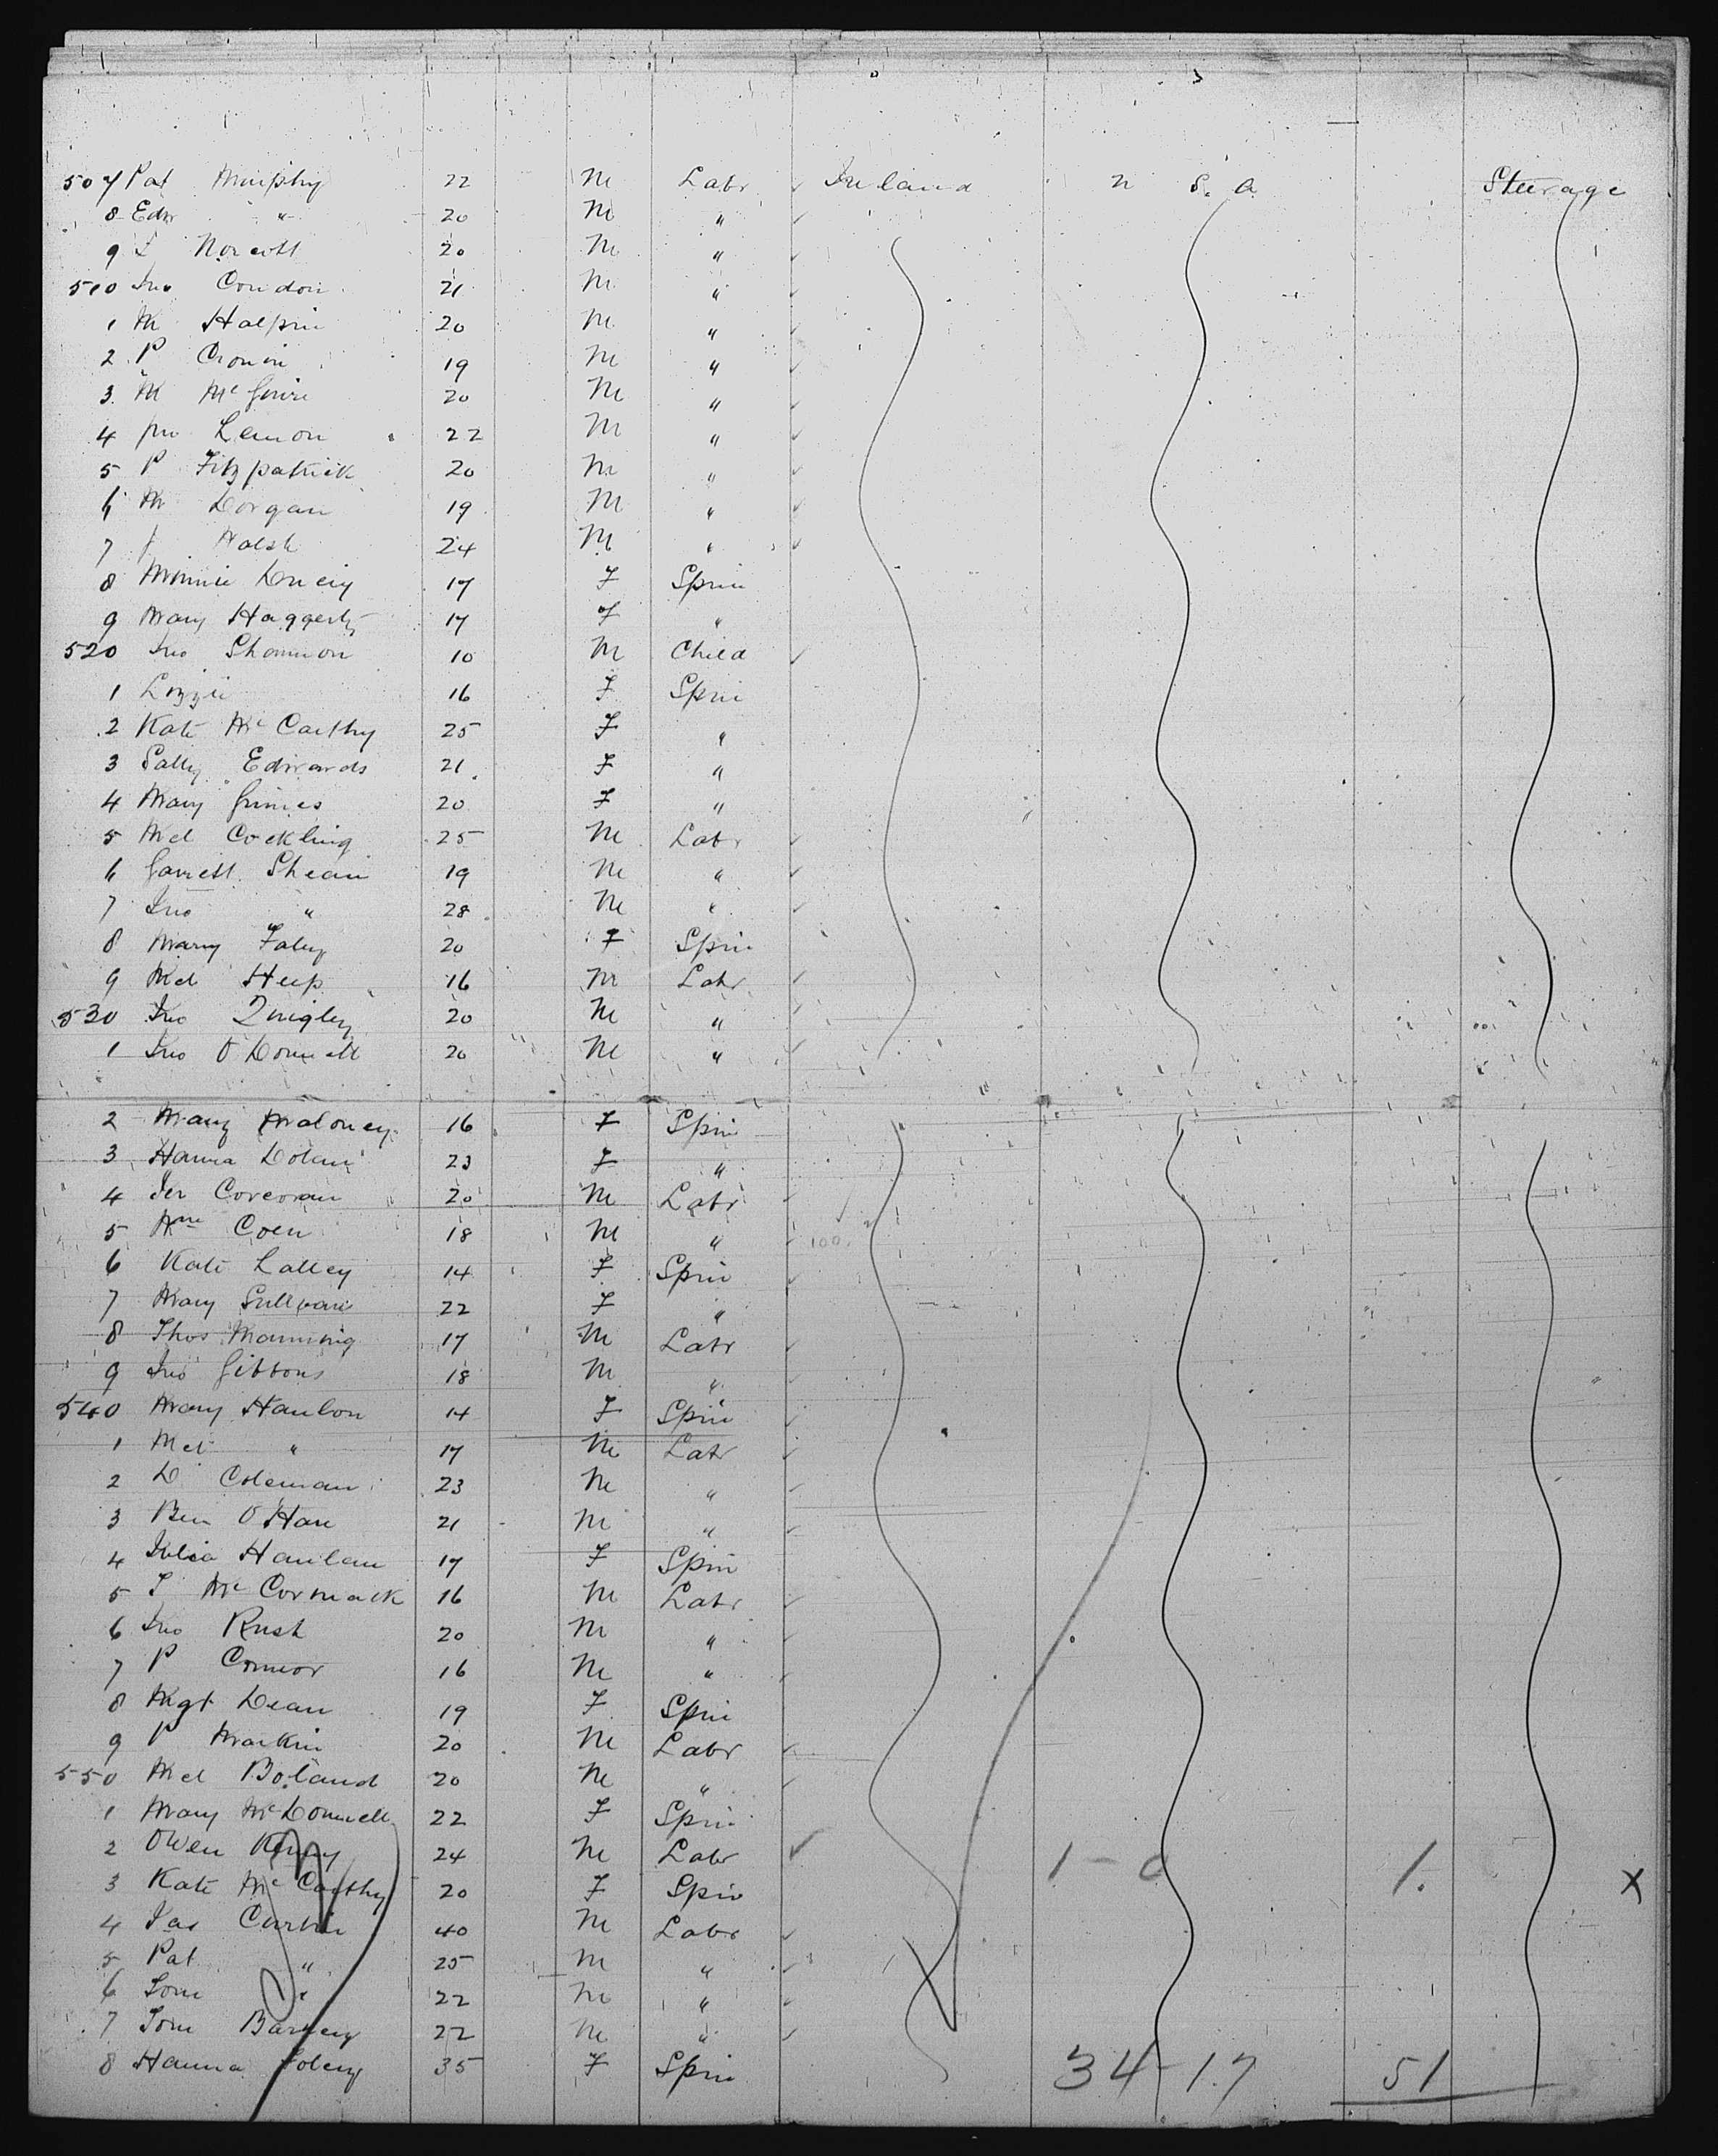 507 Pat Murphy 22 M Labr Ireland U S. A Steerage
8 Edw " 20 M "
9 Norcott 20 M "
510 Jno Condon 21 M "
1 M Halpin 20 M "
2 P Cronin 19 M "
3 M McGuire 20 M "
4 Jno Lemon 22 M "
5 P Fitzpatrick 20 M "
6 M Dorgan 19 M "
7 J Walsh 24 M "
8 Minnie Ducey 17 F Spin
9 Mary Haggerty 17 F "
520 Jno Shannon 10 M Child
1 Lizzie 16 F Spin
2 Kate McCarthy 25 F "
3 Sally Edwards 21 F "
4 Mary Grimes 20 F "
5 Mcl Cockling 25 M Labr
6 Garrett Shean 19 M "
7 Jno " 28 M "
8 Mary Foley 20 F Spin
9 Mcl Heep 16 M Labr
530 Jno Quigley 20 M "
1 Jno O Donnell 20 M "
2 Mary Maloney 16 F Spin
3 Hanna Dolan 23 F "
4 Jer Corcoran 20 M Labr
5 Wm Coen 18 M " 100
6 Kate Lalley 14 F Spin
7 Mary Sullivan 22 F "
8 Thos Manning 17 M Labr
9 Jno Gibbons 18 M "
540 Mary Hanlon 14 F Spin
1 Mcl " 17 M Labr
2 D Coleman 23 M "
3 Ben O Hare 21 M "
4 Julia Hanlan 17 F Spin
5 T McCormack 16 M Labr
6 Jno Rush 20 M "
7 P Connor 16 M "
8 Mgt Dean 19 F Spin
9 P Markin 20 M Labr
550 Mcl Boland 20 M "
1 Mary McDonnell 22 F Spin
2 Owen 24 M Labr 1 - 0 1.
3 Kate McCarthy 20 F Spin X
4 Jas Curtin 40 M Labr
5 Pat " 25 M "
6 Tom " 22 M "
7 Tom 22 M "
8 Hanna Foley 35 F Spin 34 - 17 51